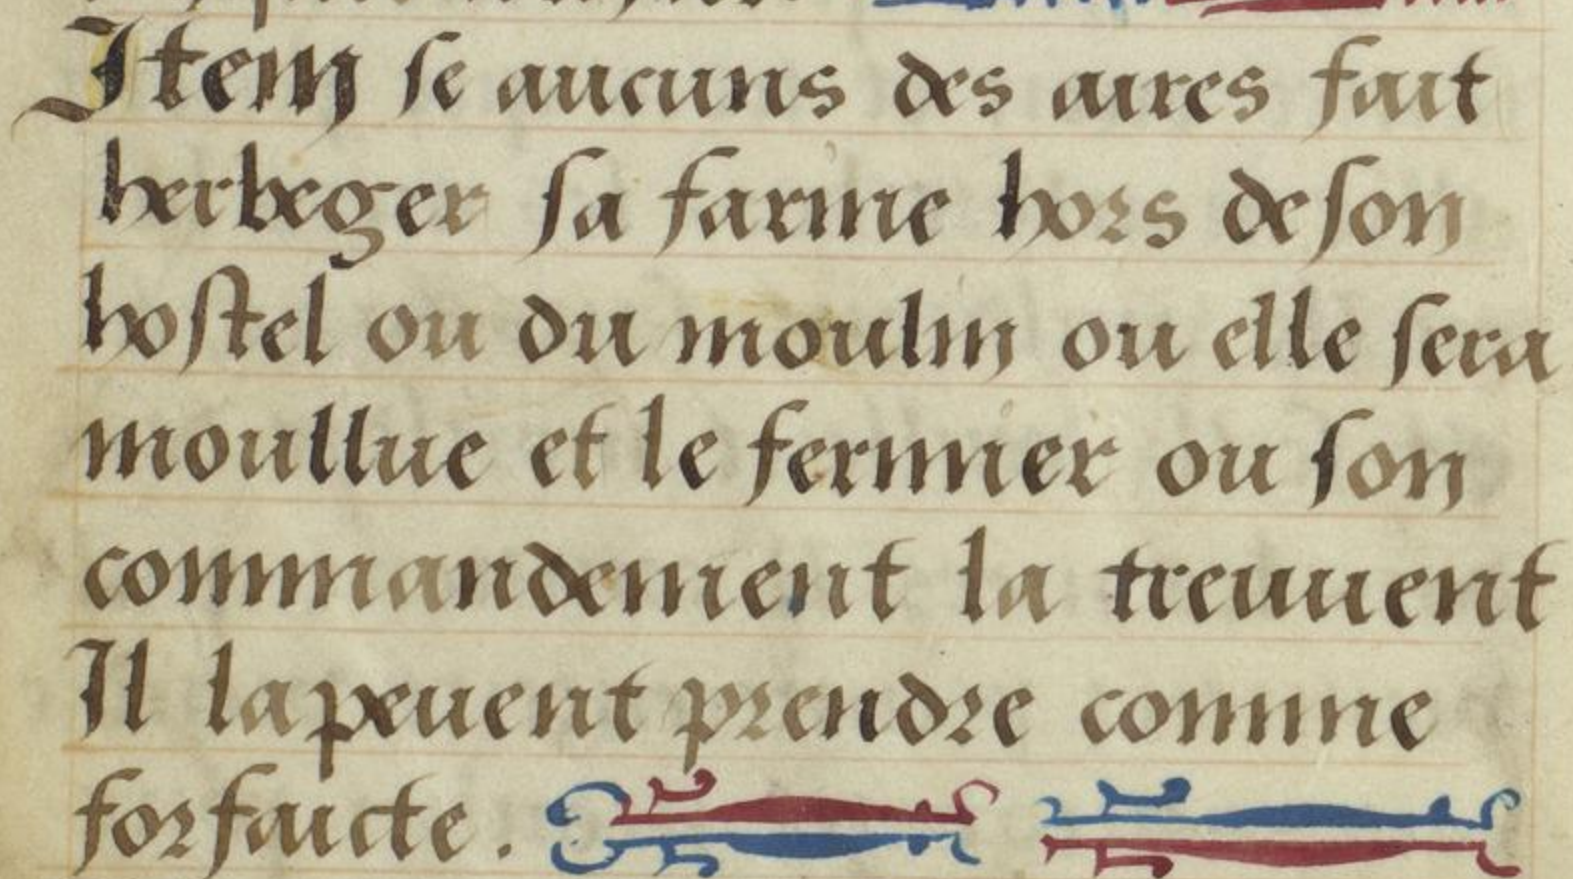 Item se aucuns des aires fait
herbeger sa farine hors de son
hostel ou du moulin ou elle sera
moullue et le fermier ou son
commandement la treuuent
Il la peuent prendre comme
forfaicte.